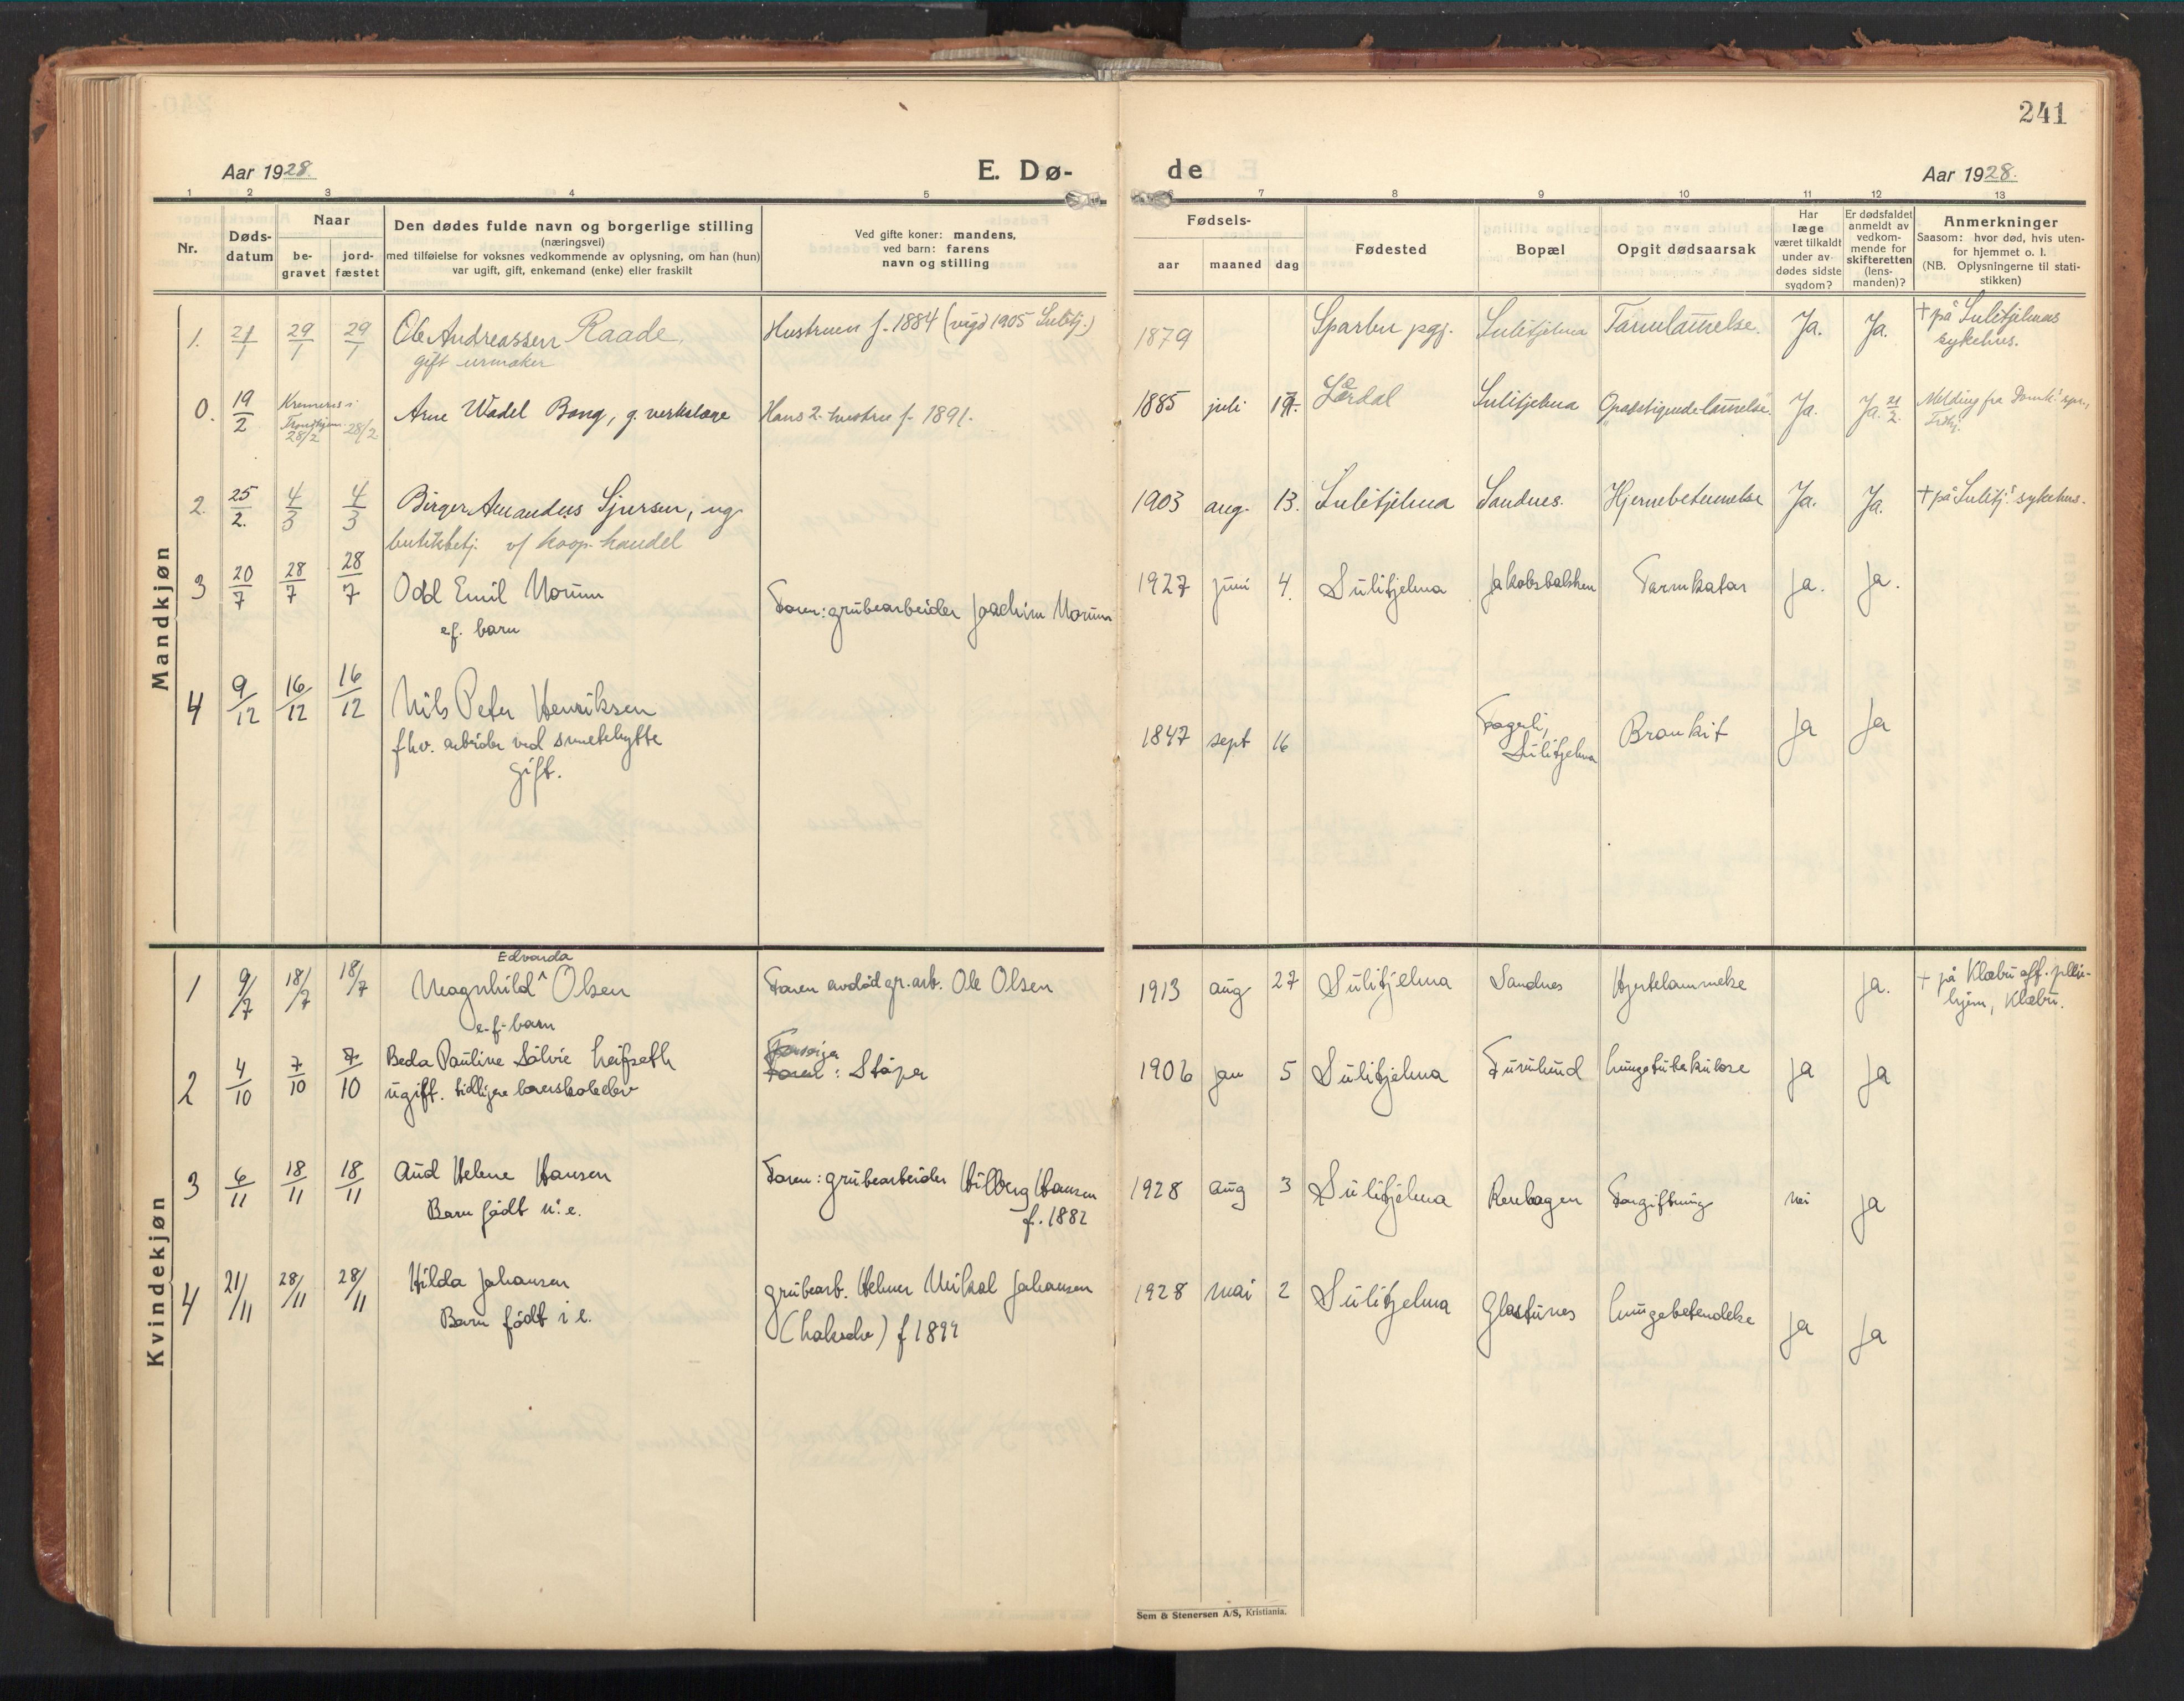 241
Aar 1928.
E. Dø-
de
Aar 1928.
1 2 3 4 5 6 7 8 9 10 11 12 13
Nr.
Døds-
datum
Naar
be-
gravet
jord-
fæstet
Den dødes fulde navn og borgerlige stilling
(næringsvei)
med tilføielse for voksnes vedkommende av oplysning, om han (hun)
var ugift, gift, enkemand (enke) eller fraskilt
Ved gifte koner: mandens,
ved barn: farens
navn og stilling
Fødsels-
aar maaned dag
Fødested
Bopæl
Opgit dødsaarsak
Har
læge
været tilkaldt
under av-
dødes sidste
sygdom?
Er dødsfaldet
anmeldt av
vedkom-
mende for
skifteretten
(lens-
manden)?
Anmerkninger
Saasom: hvor død, hvis uten-
for hjemmet o. l.
(NB. Oplysningerne til stati-
stikken)
Mandkjøn
1. 21/1 29/1 29/1 Ole Andreassen Raade, Hustruen f. 1884 (vigd 1905 Sulitj.) 1879 Sparbu pgj. Sulitjelma Tarmlammelse. Ja. Ja. † på Sulitjelmas
gift urmaker
sykehus.
0. 19/2 Kremeres i
Trondhjem 28/2 28/2 Arne Wadel Bang, g. verkslæge Hans 2. hustru f. 1891. 1885 juli 19. Lærdal Sulitjelma Opadstigende lammelse. Ja. Ja. 21/2. Melding fra Domk.
2. 25/2. 4/3 4/3 Birger Amandus Sjursen, ug. 1903 aug. 13. Sulitjelma Sandnes. Hjernebetennelse Ja. Ja. † på Sulitj.s sykehus.
butikbetj. v/ koop. handel
3 20/7 28/7 28/7 Odd Emil Morum Faren: grubearbeider Joachim Morum 1927 juni 4. Sulitjelma Jakobsbakken Tarmkatar Ja. Ja.
e.f. barn
4 9/12 16/12 16/12 Nils Peter Henriksen 1847 sept 16 Fagerli,
Sulitjelma Bronkit Ja Ja
fhv. arbeider ved smeltehytte
gift.
Kvindekjøn
Edvarda
1 9/7 18/7 18/7 Magnhild ^ Olsen Faren avdød gr.arb. Ole Olsen 1913 aug 27 Sulitjelma Sandnes Hjertelammelse Ja. † på Klæbu off. pleie-
hjem, Klæbu.
e.f. barn
2 4/10 7/10 7/10 Beda Pauline Sølvie Leifseth Faren: Støper 1906 jan 5 Sulitjelma Furulund Lungetuberkulose Ja Ja
ugift. tidligere lærerskoleelev
3 6/11 18/11 18/11 Aud Helene Hansen Faren: grubearbeider Hilberg Hansen
f. 1882 1928 aug 3 Sulitjelma Renhagen Forgiftning Nei Ja
Barn født i e.
4 21/11 28/11 28/11 Hilda Johansen grubearb. Helmer Mikal Johansen 1928 mai 2 Sulitjelma Glastunes Lungebetendelse Ja Ja
Barn født i e.
f 1899
Sem & Stenersen A/S, Kristiania.